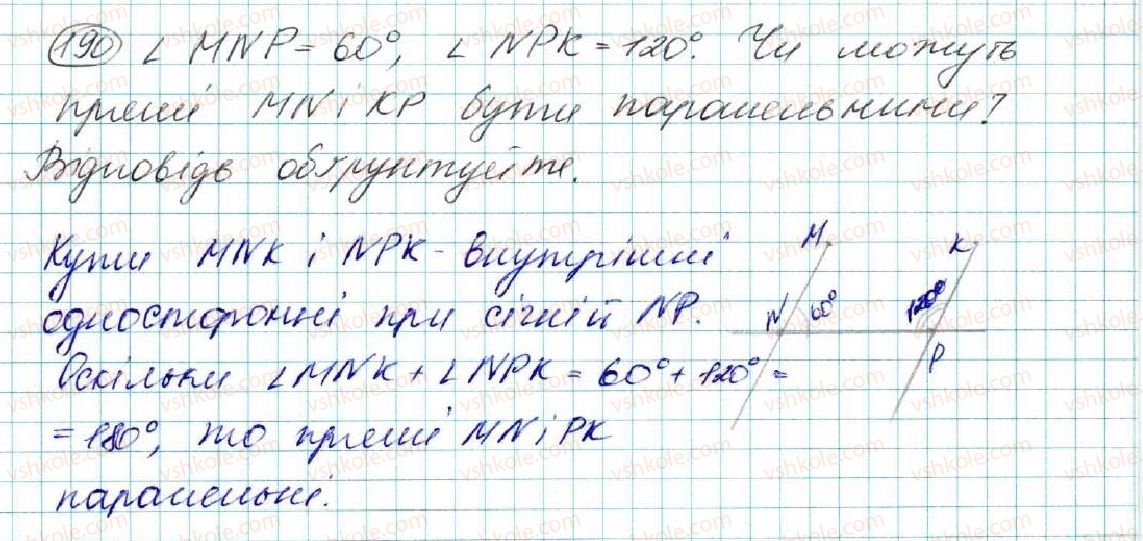 190 ∠ MNP = 60°, ∠ NPK = 120°. Чи можуть
прямі MN і KP бути паралельними?
Відповідь обґрунтуйте.
Кути MNK і NPK - внутрішні
односторонні при січній NP.
Оскільки ∠MNK + ∠NPK = 60° + 120° =
= 180°, то прямі MN і PK
паралельні.
M K
N 60° 120°
P